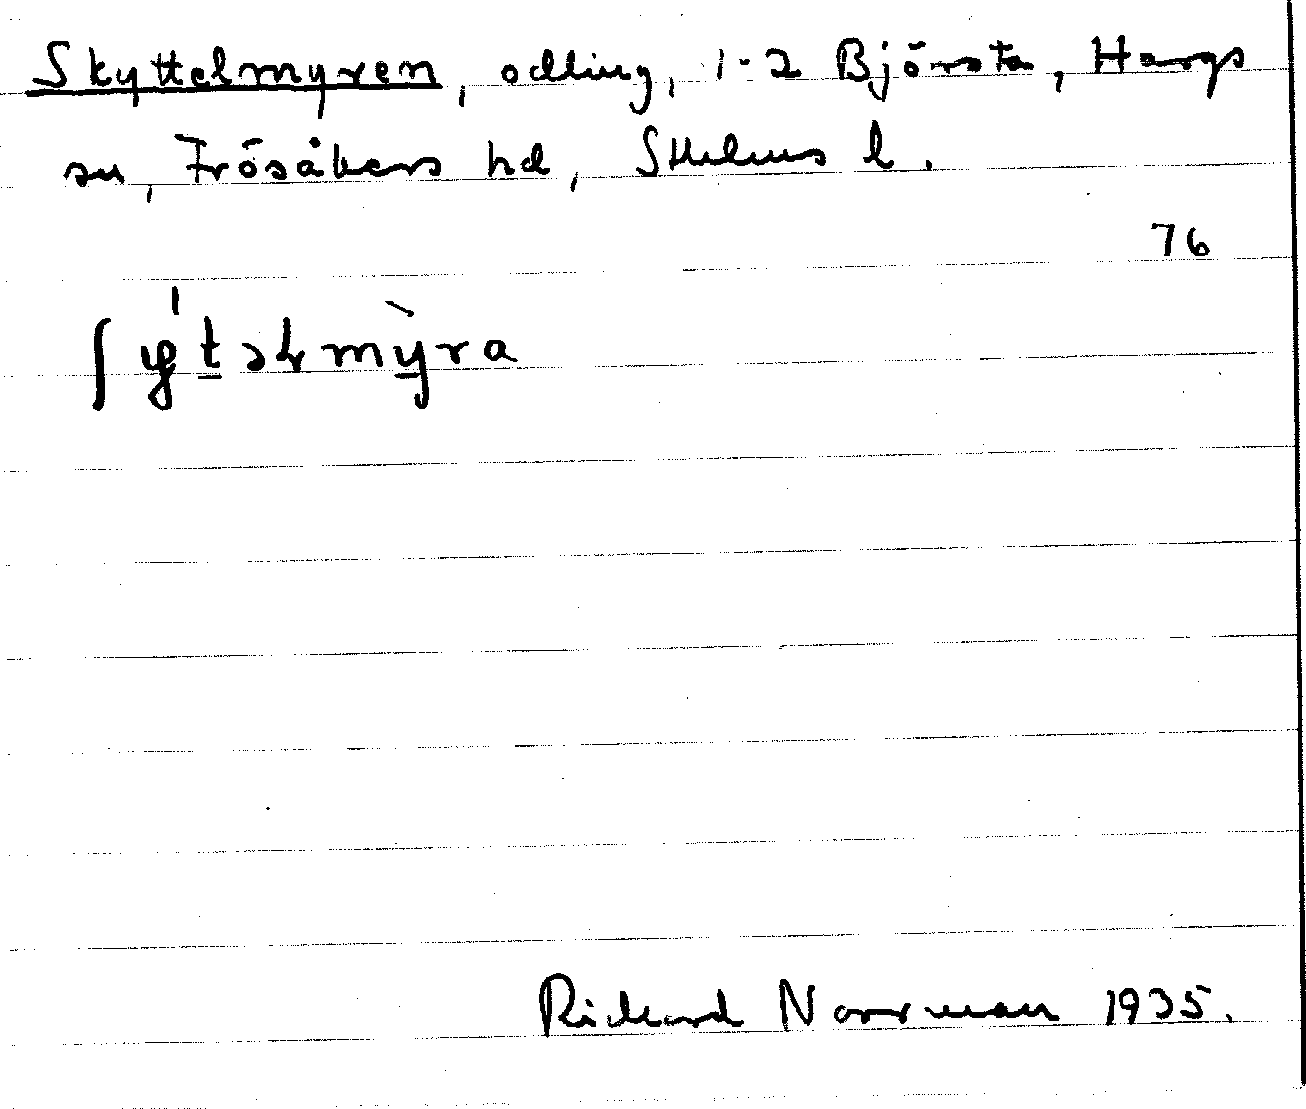 Skyttelmyren, odling, 1-2 Björsta, Hargs
sn, Frösåkers hd, Sthlms l.
76
Rickard Norrman 1935.